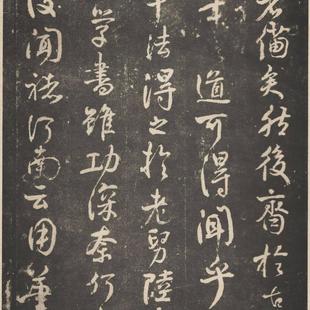 者備矣然後齊於古
道可得聞乎
法得之於老舅陸
學書雖功深奈何
後聞褚河南云用筆